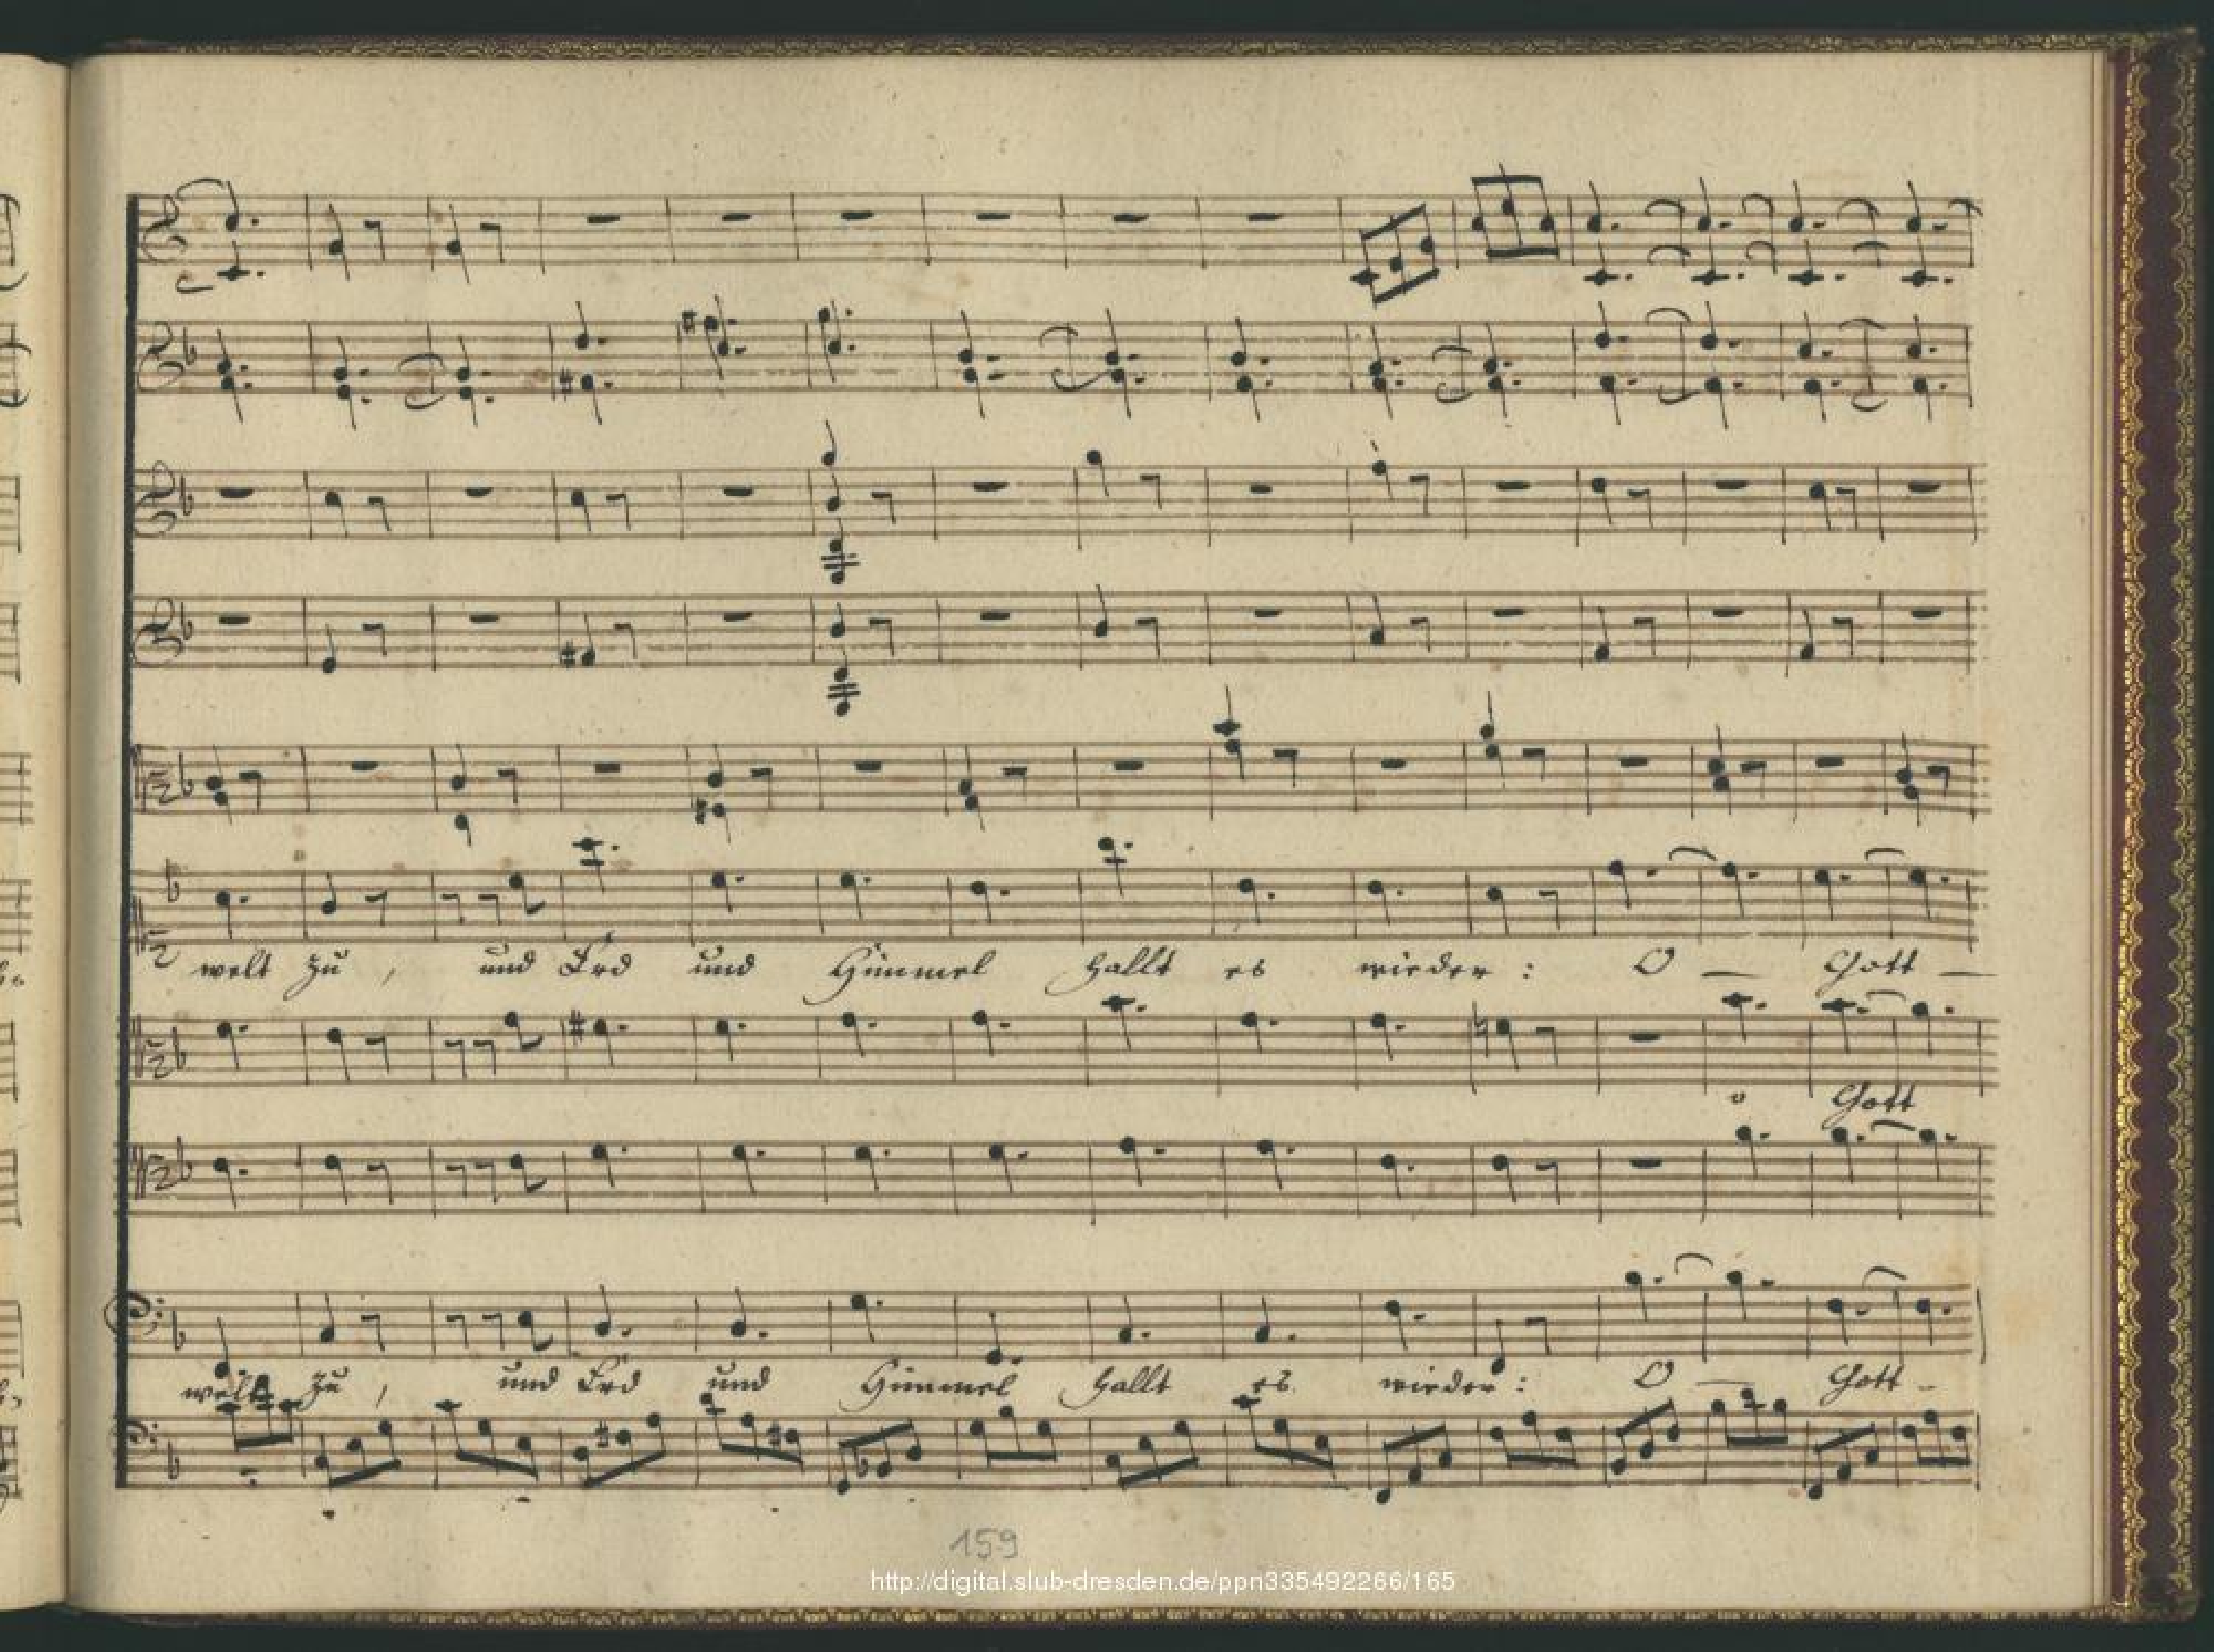 welt zu, und Erd und Himmel hallt es wieder: O — Gott —
o Gott
welt zu, und Erd und Himmel hallt es wieder: O — Gott -
159
http://digital.slub-dresden.de/ppn335492266/165